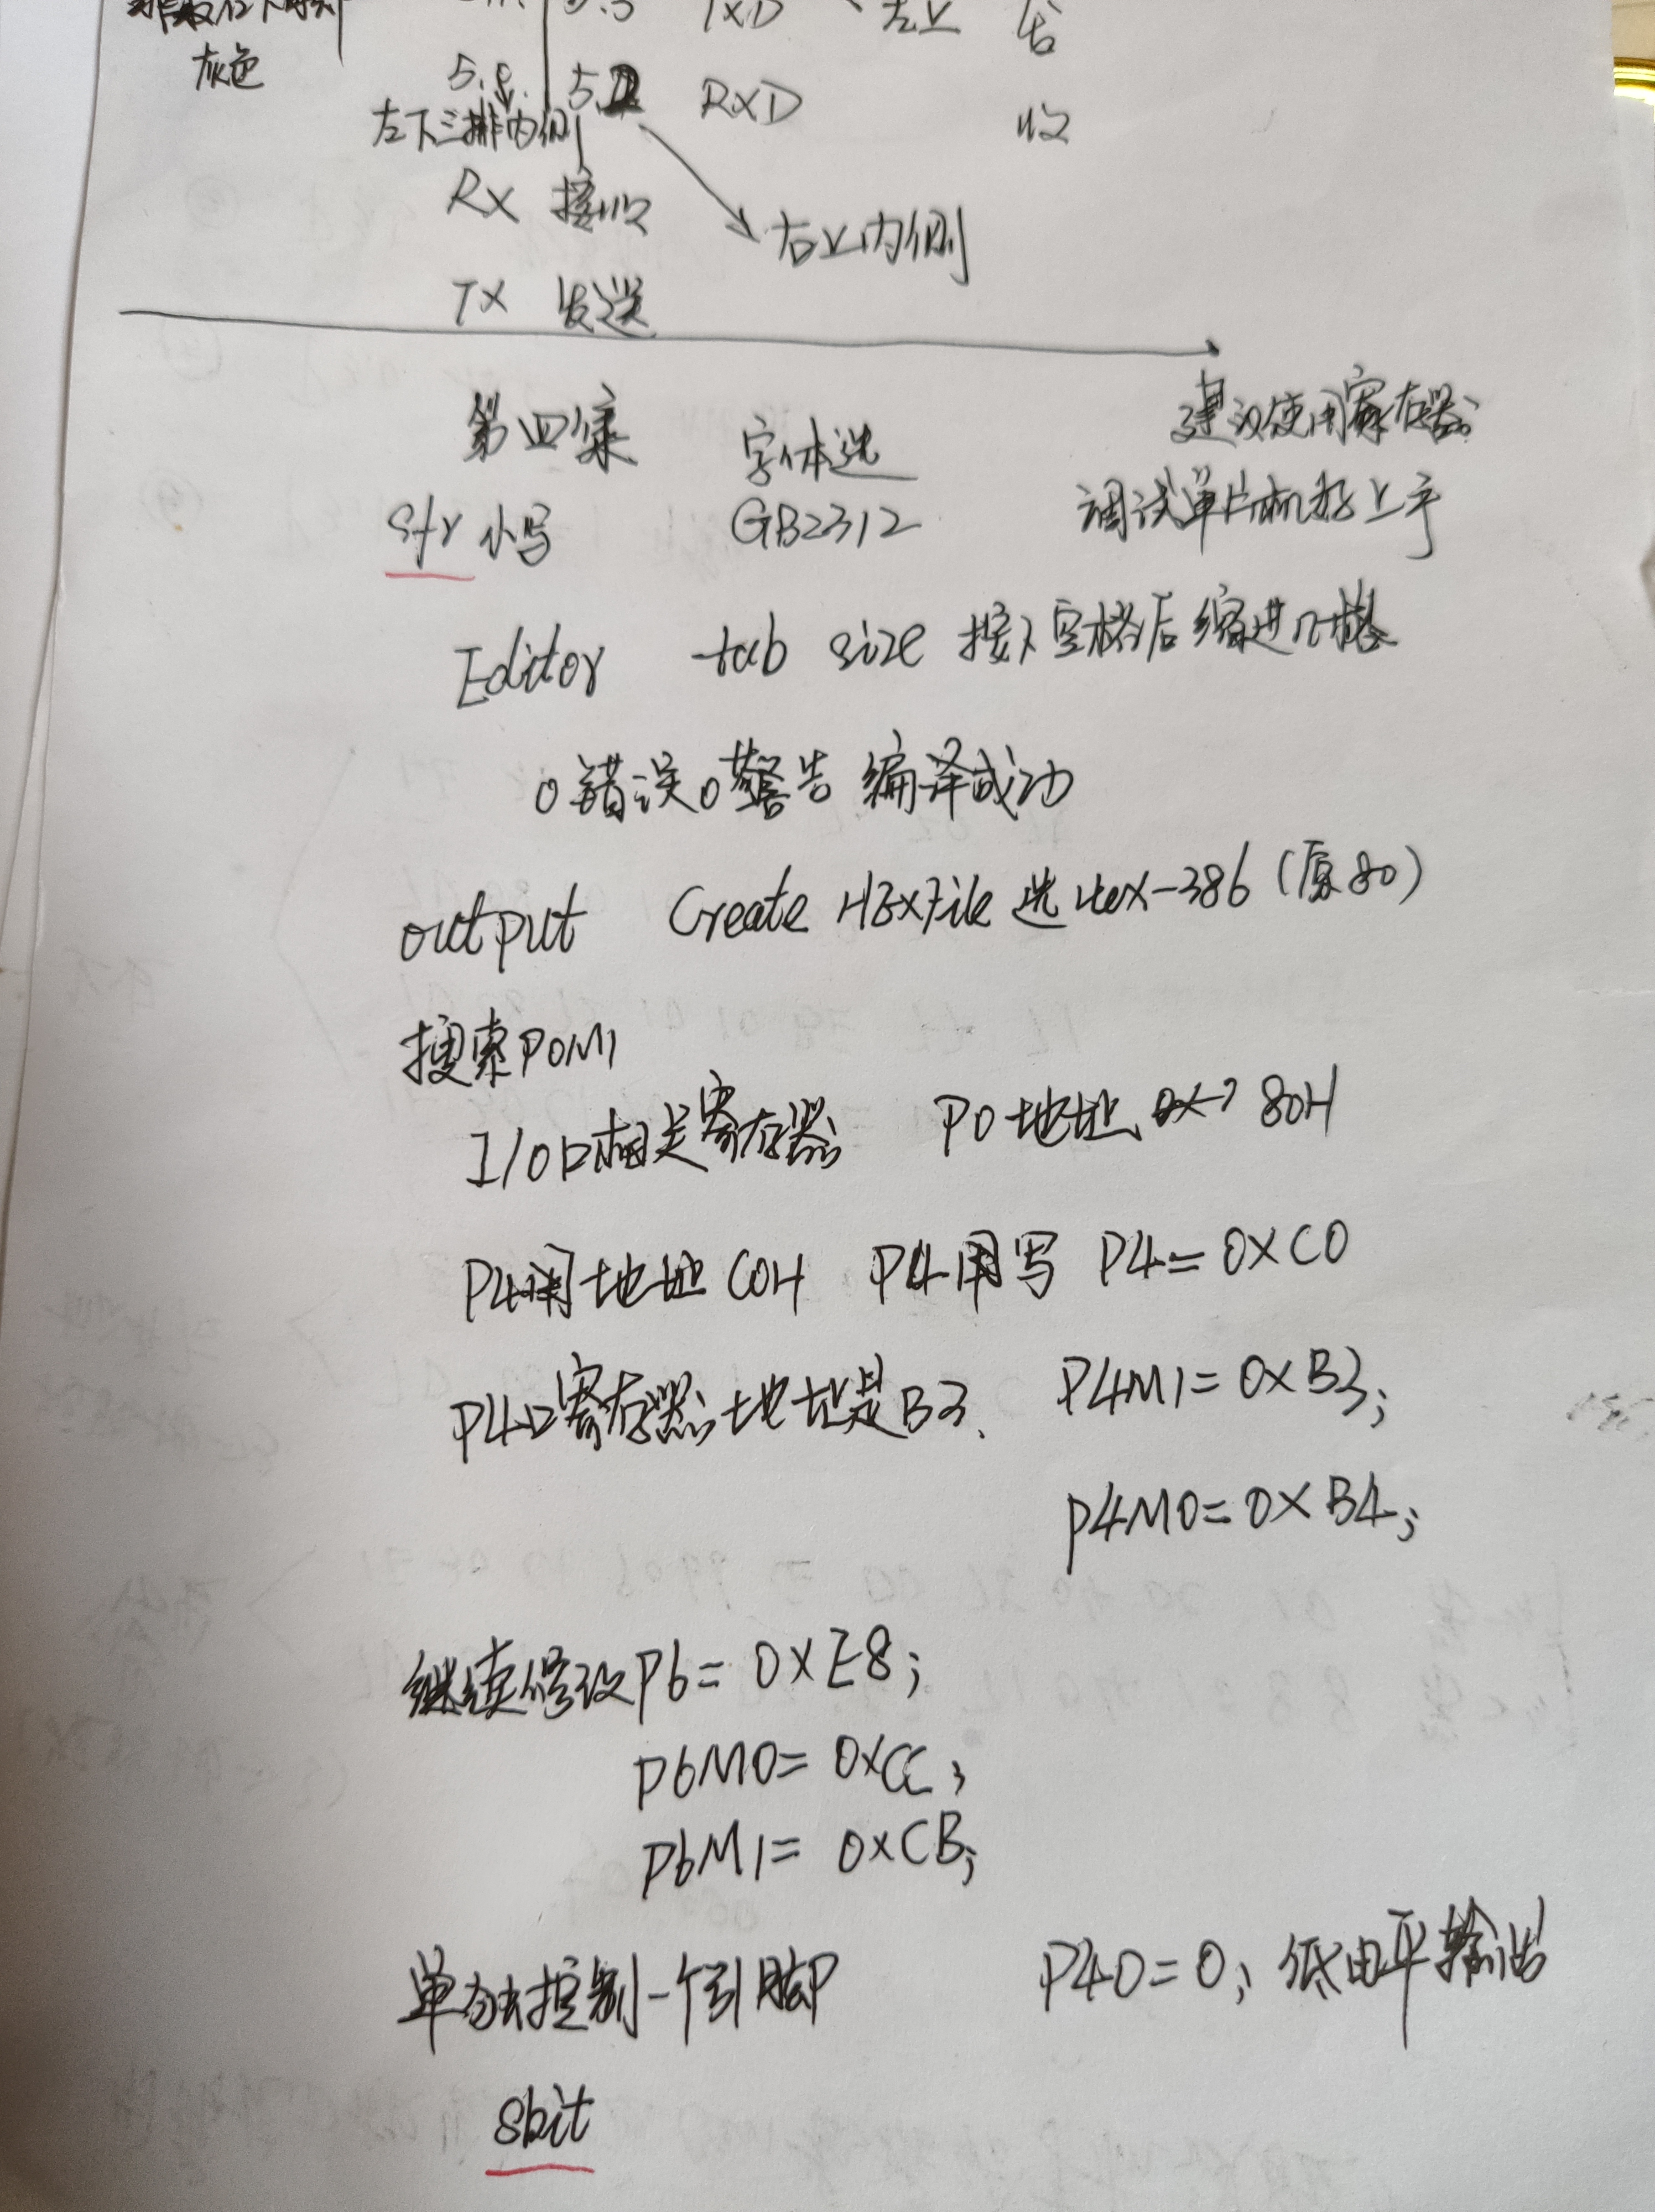 灰色
TXD 左上
5.2 RXD 收
左下三排内侧
RX 接收
右上内侧
TX 发送
第四集 字体选 建议使用寄存器
sfr 小写 GB2312 调试单片机快上手
Editor tab size 按下空格后缩进几格
0错误0警告 编译成功
output Create HEXFile 选Hex-386(原80)
搜索P0M1
I/O口相关寄存器 P0地址 80H
P4用地址C0H P4用写 P4=0XC0
P4口寄存器地址是B3、 P4M1=0XB3;
P4M0=0XB4;
继续修改P6=0XE8;
P6M0=0XCC;
P6M1=0XCB;
单独控制一个引脚P P40=0; 低电平输出
sbit